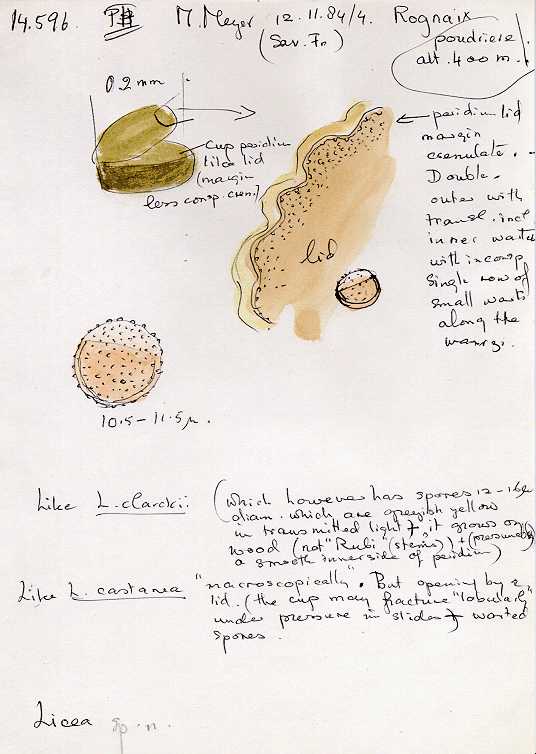 14.596 M. Meyer 12.11.84/4. Rognaix
(Sav. Fr) poudrière
alt. 400 m.
0.2 mm
cup peridium
like lid
(margin
less consp. cren.)
lid
peridium lid
margin
crenulate.
Double.
outer with
transl. incl
inner warted
with inconsp
single row of
small warts
along the
marg.
10.5-11.5µ.
Like L. clarckii (which however has spores 12-16µ
diam. which are greyish yellow
in transmitted light + it grows on
wood (not "Rubi" (stems)) + (presumably
a smooth innerside of peridium)
Like L. castanea "macroscopically". But opening by a
lid. (the cup may fracture "lobularly"
under pressure in slides + warted
spores.
Licea sp. n.